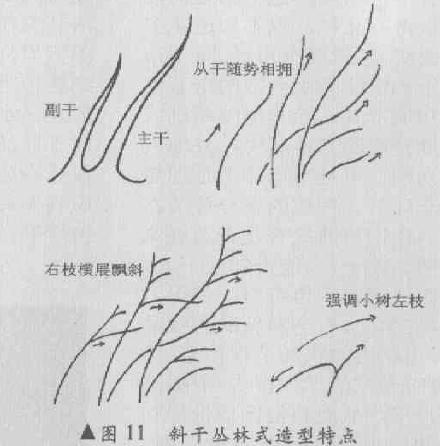 从干随势相拥
副干
主干
右枝横展飘斜
强调小树左枝
▲图 11 斜干丛林式造型特点